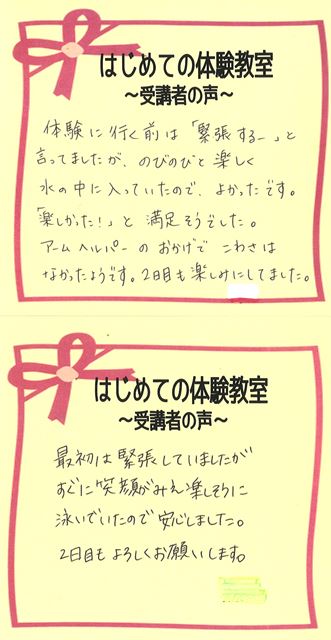 はじめての体験教室
～受講者の声～
体験に行く前は「緊張するー」と
言ってましたが、のびのびと楽しく
水の中に入っていたので、よかったです。
「楽しかった!」と満足そうでした。
アームヘルパーのおかげでこわさは
なかったようです。2日目も楽しみにしてました。
はじめての体験教室
～受講者の声～
最初は緊張していましたが
すぐに笑顔がみえ楽しそうに
泳いでいたので安心しました。
2日目もよろしくお願いします。